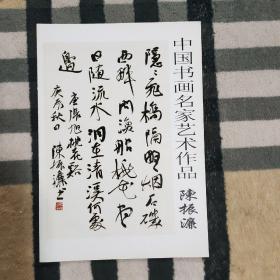 中国书画名家艺术作品 陳振濂
隱隱飛橋隔野煙石磯
西畔問漁船桃花盡
日隨流水洞在清溪何處
邊
唐張旭桃花谿
秋日陳振濂書